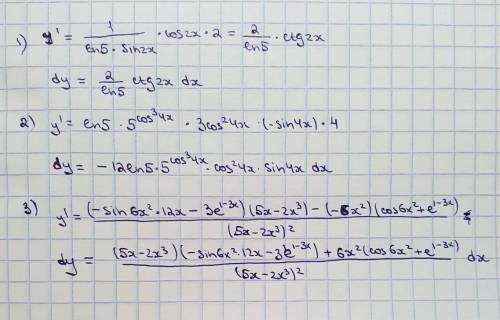 1) y' = 1/(ln5 · sin2x) · cos2x · 2 = 2/ln5 · ctg2x
dy = 2/ln5 ctg2x dx
2) y' = ln5 · 5^(cos³4x) · 3cos²4x · (-sin4x) · 4
dy = -12ln5 · 5^(cos³4x) · cos²4x · sin4x dx
3) y' = ((-sin6x² · 12x - 3e^(1-3x))(5x-2x³) - (-6x²)(cos6x² + e^(1-3x)))/(5x-2x³)²
dy = ((5x-2x³)(-sin6x² · 12x - 3e^(1-3x)) + 6x²(cos6x² + e^(1-3x)))/(5x-2x³)² dx